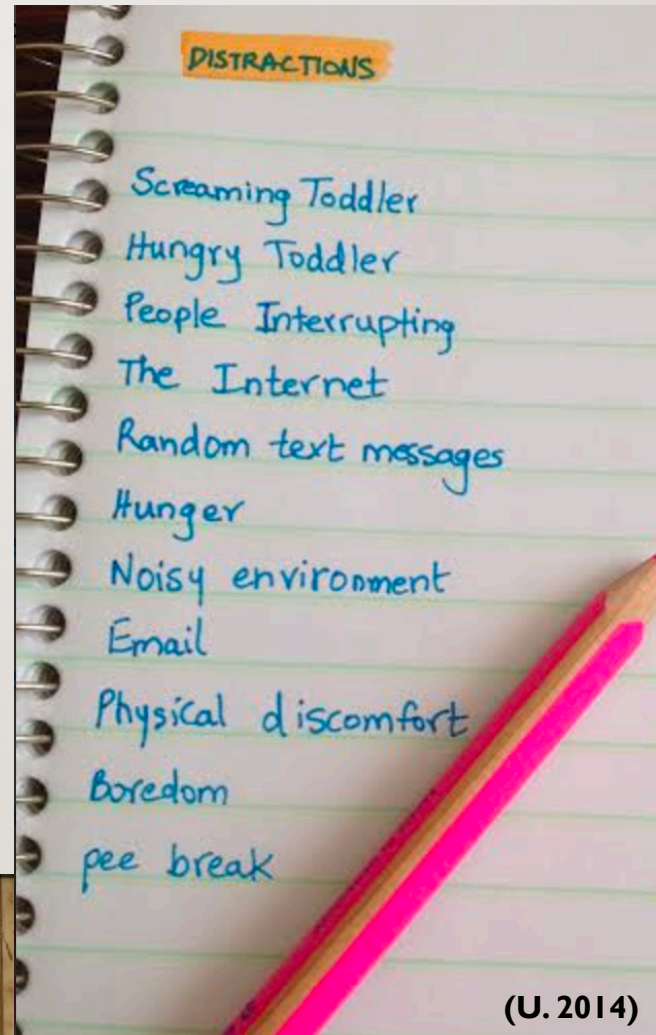 DISTRACTIONS
Screaming Toddler
Hungry Toddler
People Interrupting
The Internet
Random text messages
Hunger
Noisy environment
Email
Physical discomfort
Boredom
pee break
(U. 2014)